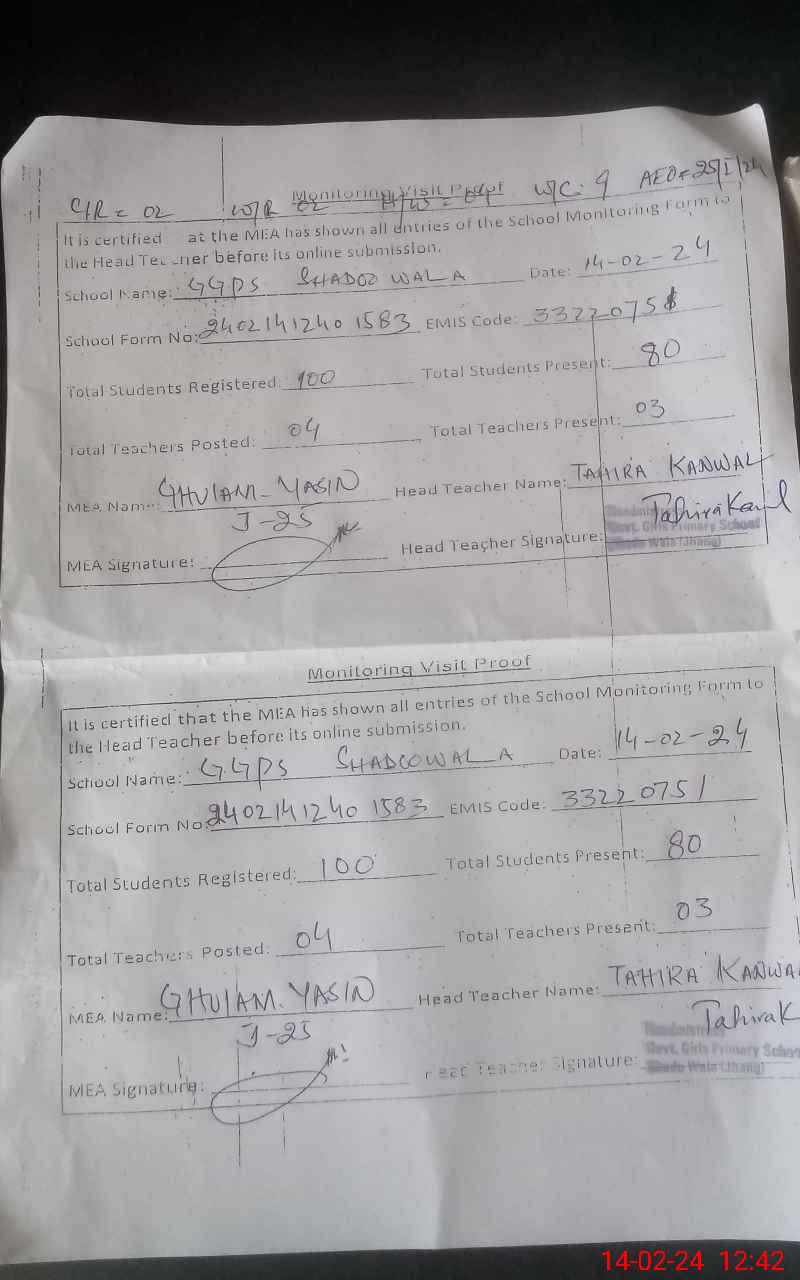 C/R = 02 W/R 02 W/C: 9 AEO = 25/I/24
Monitoring Visit Proof
It is certified at the MEA has shown all entries of the School Monitoring Form to
the Head Teacher before its online submission.
School Name: GGPS SHADOO WALA Date: 14-02-24
School Form No: 2402141240 1583 EMIS Code: 33220751
Total Students Registered: 100 Total Students Present: 80
Total Teachers Posted: 04 Total Teachers Present: 03
MEA Name: GHULAM-YASIN Head Teacher Name: TAHIRA KANWAL
J-25
MEA Signature: Head Teacher Signature: Tahira
Govt. Girls Primary School
(Jhang)
Monitoring Visit Proof
It is certified that the MEA has shown all entries of the School Monitoring Form to
the Head Teacher before its online submission.
School Name: GGPS SHADOOWALA Date: 14-02-24
School Form No: 2402141240 1583 EMIS Code: 33220751
Total Students Registered: 100 Total Students Present: 80
Total Teachers Posted: 04 Total Teachers Present: 03
MEA Name: GHULAM-YASIN Head Teacher Name: TAHIRA KANWA
J-25
MEA Signature: Head Teacher Signature: Tahira K
Govt. Girls Primary School
(Jhang)
14-02-24 12:42